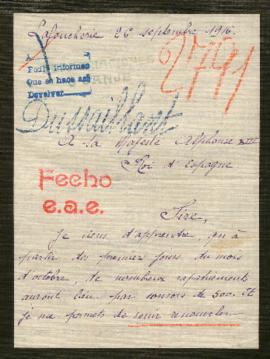 Lafoucherie 26 septembre 1916.
6/2791
Pedir informes
Que se hace así
Devolver
Dussuillant
A Sa Majesté Alphonse XIII
Roi d'Espagne
Fecho
e.a.e.
Sire,
Je viens d'apprendre, qu'à
partir des premiers jours du mois
d'octobre, de nombreux rapatriements
auront lieu par convois de 500. Et
je me permets de venir renouveler